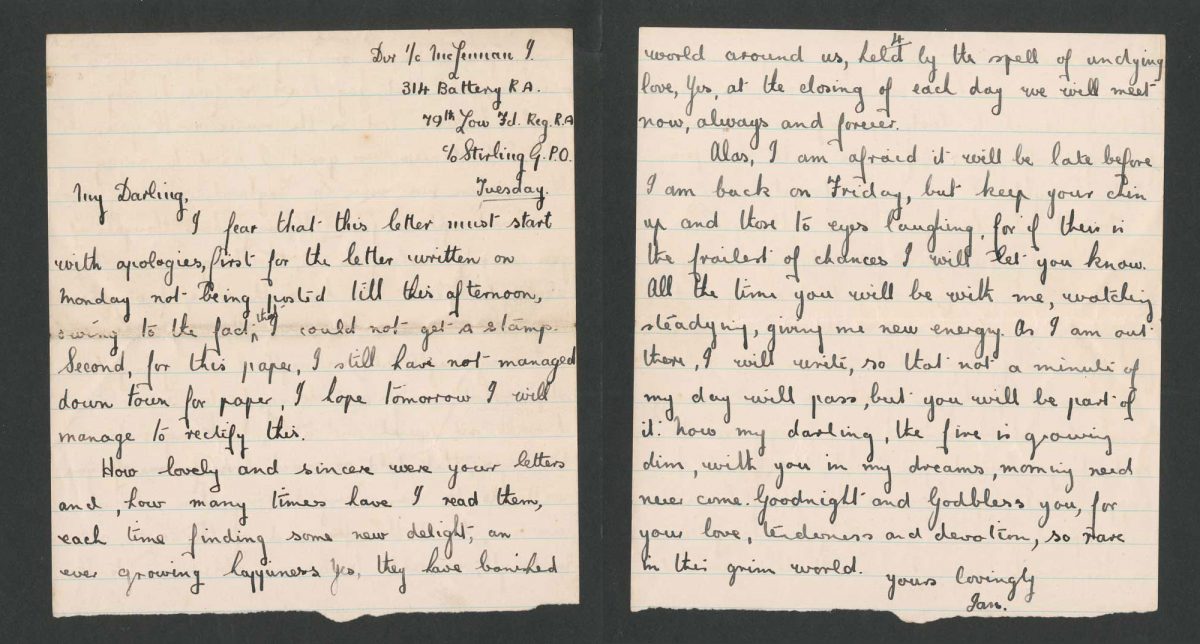 Dvr i/c McLennan I.
314 Battery R.A.
79th Low Fd. Reg. R.A
c/o Stirling G.P.O.
Tuesday.
My Darling,
I fear that this letter must start
with apologies, first for the letter written on
Monday not being posted till this afternoon,
owing to the fact, that I could not get a stamp.
Second, for this paper, I still have not managed
down town for paper, I hope tomorrow I will
manage to rectify this.
How lovely and sincere were your letters
and, how many times have I read them,
each time finding some new delight, an
ever growing happiness yes, they have banished
4
world around us, held by the spell of undying
love, Yes, at the closing of each day we will meet
now, always and forever.
Alas, I am afraid it will be late before
I am back on Friday, but keep your chin
up and those to eyes laughing, for if their is
the frailest of chances I will let you know.
All the time you will be with me, watching
steadying, giving me new energy. As I am out
there, I will write, so that not a minute of
my day will pass, but you will be part of
it. Now my darling, the fire is growing
dim, with you in my dreams, morning need
never come. Goodnight and Godbless you, for
your love, tenderness and devotion, so rare
in this grim world.
yours lovingly
Ian.